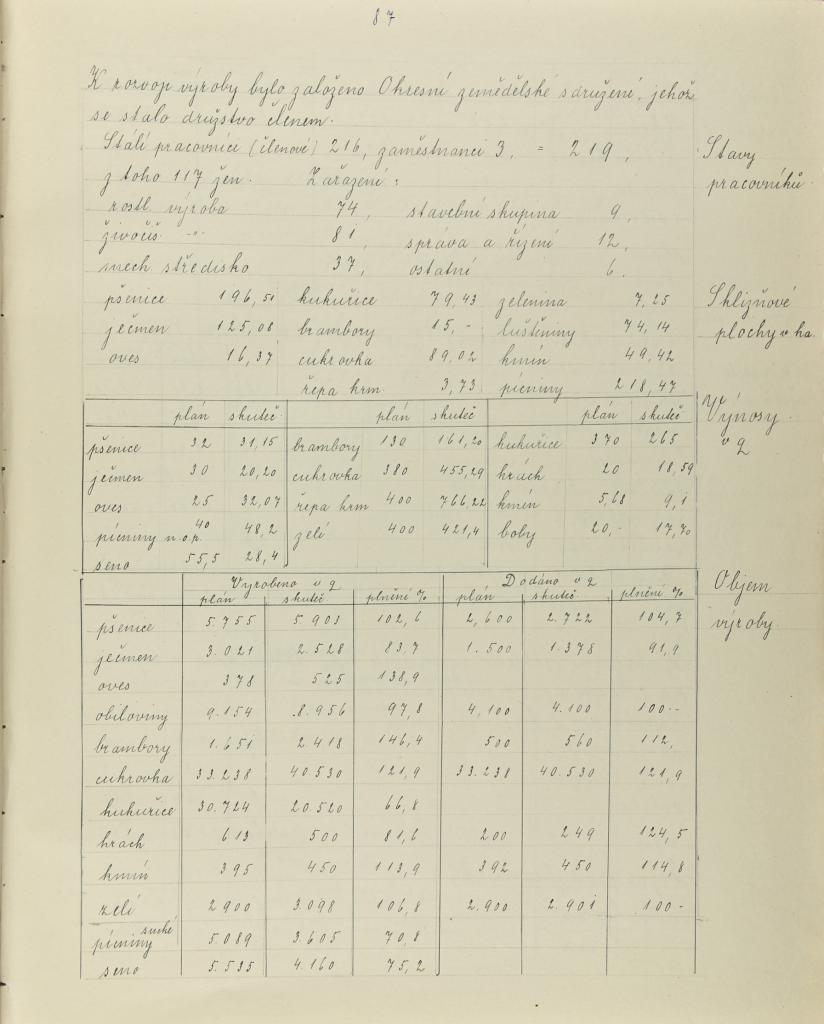 87
K rozvoji výroby bylo založeno Okresní zemědělské sdružení, jehož
se stalo družstvo členem.
Stálí pracovníci (členové) 216, zaměstnanci 3, = 219,
z toho 117 žen. Zařazení:
Stavy
pracovníků.
rostl. výroba 74, stavební skupina 9,
živočiš. -"- 81, správa a řízení 12,
mech. středisko 37, ostatní 6.
pšenice 196,51 kukuřice 79,43 zelenina 7,25
ječmen 125,08 brambory 15,- luštěniny 74,14
oves 16,37 cukrovka 89,02 kmín 49,42
řepa krm. 3,73 pícniny 218,47
Sklizňové
plochy v ha.
plán skuteč. plán skuteč plán skuteč
pšenice 32 31,15 brambory 130 161,20 kukuřice 370 265
ječmen 30 20,20 cukrovka 380 455,29 hrách 20 18,59
oves 25 32,07 řepa krm 400 766,22 kmín 5,68 9,1
pícniny n.o.p. 40 48,2 zelí 400 421,4 boby 20,- 17,70
seno 55,5 28,4
Výnosy
v q
Vyrobeno v q Dodáno v q
plán skuteč plnění % plán skuteč plnění %
pšenice 5.755 5.901 102,6 2,600 2.722 104,7
ječmen 3.021 2.528 83,7 1.500 1.378 91,9
oves 378 525 138,9
obiloviny 9.154 8.956 97,8 4,100 4.100 100.-
brambory 1.651 2.418 146,4 500 560 112,
cukrovka 33.238 40.530 121,9 33.238 40.530 121,9
kukuřice 30.724 20.520 66,8
hrách 613 500 81,6 200 249 124,5
kmín 395 450 113,9 392 450 114,8
zelí 2900 3.098 106,8 2.900 2.901 100-
pícniny suché 5.089 3.605 70,8
seno 5.535 4.160 75,2
Objem
výroby